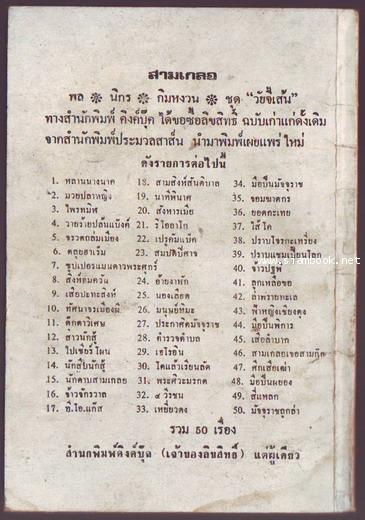 สามเกลอ
พล ❋ นิกร ❋ กิมหงวน ❋ ชุด "วัยจี้เส้น"
ทางสำนักพิมพ์ คิงค์บุ๊ค ได้ขอซื้อลิขสิทธิ์ ฉบับเก่าแก่ดั้งเดิม
จากสำนักพิมพ์ประมวลสาส์น นำมาพิมพ์เผยแพร่ใหม่
ดังรายการต่อไปนี้
1. หลานนางนาค
2. มวยปลาหญิง
3. ไพรทมิฬ
4. วายร้ายปล้นแบ๊งค์
5. จรวดถล่มเมือง
6. ตลุยฮาเร็ม
7. ซุปเปอร์แมนดาวพระศุกร์
8. สิงห์อมควัน
9. เสือปะทะสิงห์
10. ทัศนาจรเมืองผี
11. ตุ๊กตาวิเศษ
12. สาวนักสู้
13. ไปเซียร์โฝน
14. นักสืบนักสู้
15. นักดาบสามเกลอ
16. จ้าวจักรวาล
17. อี.ไอ.แก๊ส
18. สามสิงห์สันติบาล
19. นาทีพินาศ
20. สังหารเมีย
21. วิโอลาโก
22. เปรูคัมแบ็ค
23. สมบัติปีศาจ
24. อายงาพัก
25. นองเลือด
26. มนุษย์หิมะ
27. ประกาศิตมัจจุราช
28. ตำรวจตำบล
29. เอโรอิน
30. โคแล้วเรียนลัด
31. พระศิวะมรกต
32. ๔ วีรชน
33. เหยี่ยวดง
34. มือปืนมัจจุราช
35. จอมฆาตกร
36. ยอดกะเทย
37. ไส้โค
38. ปราบโจรกะเหรี่ยง
39. ปราบแชมเปี้ยนโลก
40. จ้าวปฐพี
41. ลูกเหลือขอ
42. ล่าทรายทะเล
43. ฟ้าหญิงเชียงตุง
44. มือปืนพิการ
45. เสือลำบาก
46. สามเกลอเจอสามกั๊ก
47. ศึกเสือเฒ่า
48. มือปืนผยอง
49. สี่แพลก
50. มัจจุราชถูกล่า
รวม 50 เรื่อง
สำนักพิมพ์คิงค์บุ๊ค (เจ้าของลิขสิทธิ์) แต่ผู้เดียว